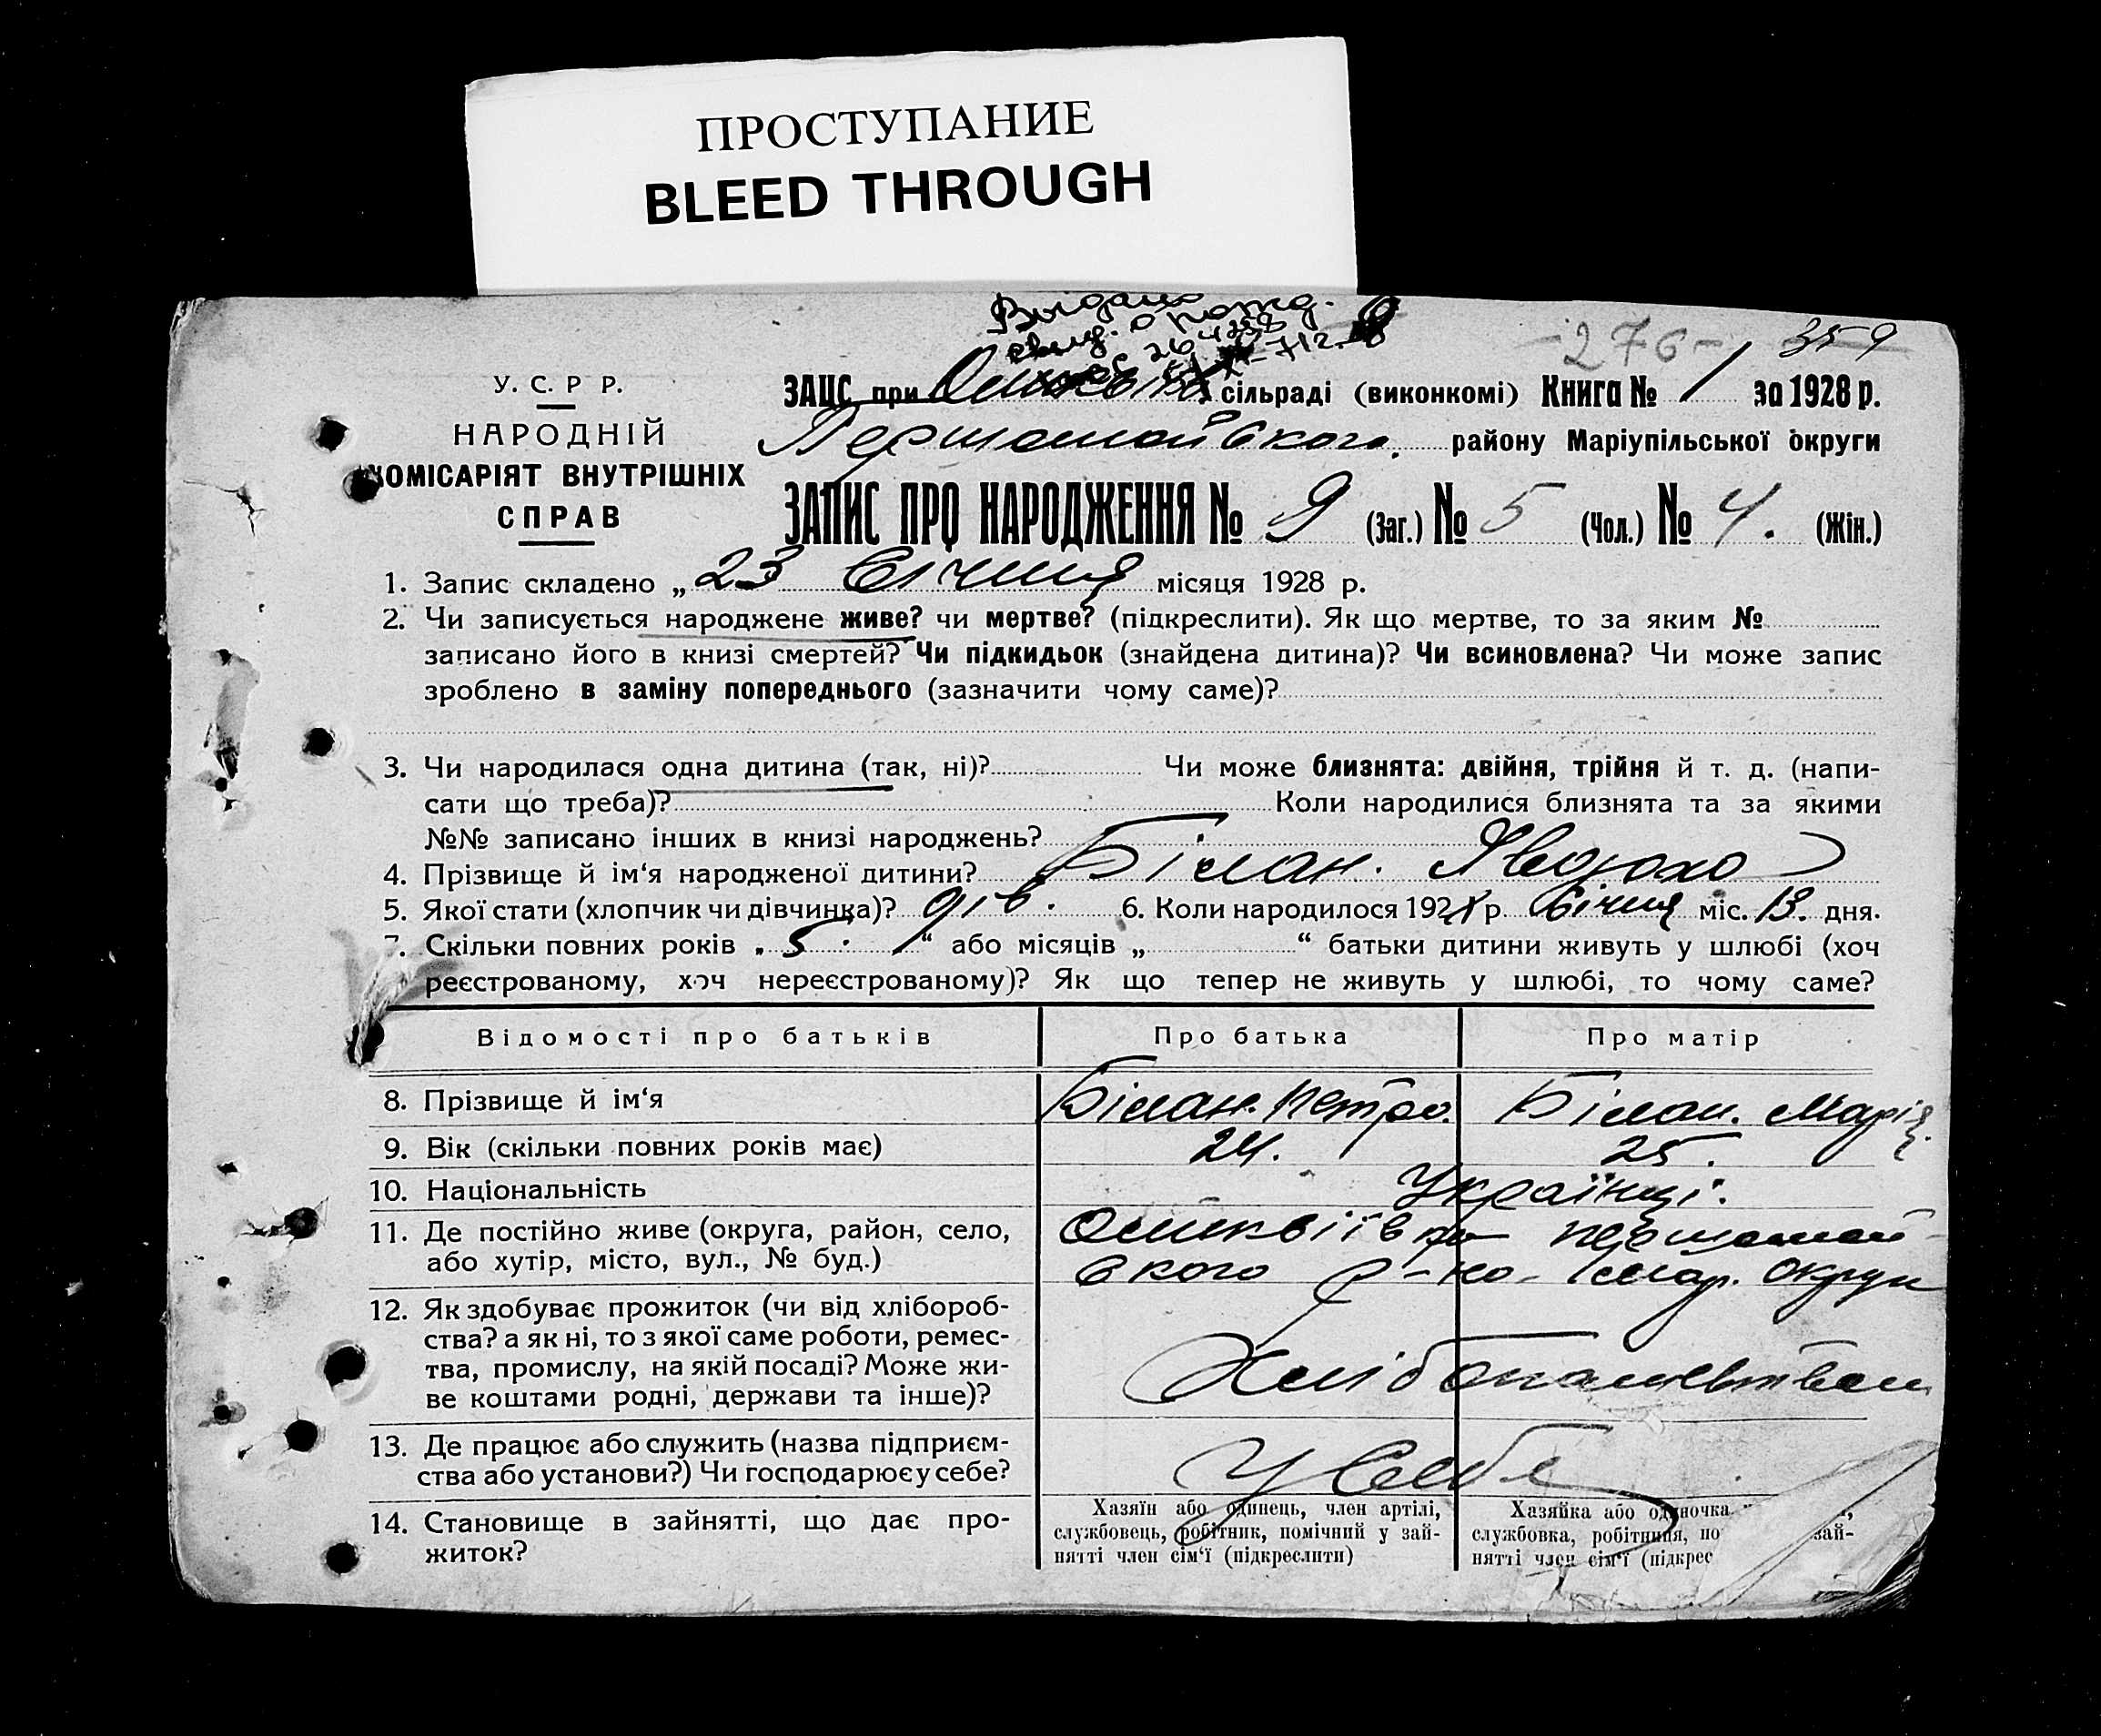 ПРОСТУПАНИЕ
BLEED THROUGH
-276- 359
У. С. Р Р.
НАРОДНІЙ
КОМІСАРІЯТ ВНУТРІШНІХ
СПРАВ
ЗАЦС при сільраді (виконкомі) Книга № 1 за 1928 р.
Першомайського району Маріупільської округи
ЗАПИС ПРО НАРОДЖЕННЯ № 9 (Заг.) № 5 (Чол.) № 4. (Жін.)
1. Запис складено „ 23 Січня місяця 1928 р.
2. Чи записується народжене живе? чи мертве? (підкреслити). Як що мертве, то за яким №
записано його в книзі смертей? Чи підкидьок (знайдена дитина)? Чи всиновлена? Чи може запис
зроблено в заміну попереднього (зазначити чому саме)?
3. Чи народилася одна дитина (так, ні)? Чи може близнята: двійня, трійня й т. д. (напи-
сати що треба)? Коли народилися близнята та за якими
№№ записано інших в книзі народжень?
4. Прізвище й ім‘я народженої дитини? Білан.
5. Якої стати (хлопчик чи дівчинка)? дів. 6. Коли народилось 192 р. Січня міс. 13. дня.
7. Скільки повних років „ 5. “ або місяців „ “ батьки дитини живуть у шлюбі (хоч
реєстрованому, хоч нереєстрованому)? Як що тепер не живуть у шлюбі, то чому саме?
Відомості про батьків Про батька Про матір
8. Прізвище й ім‘я Білан. Петро. Білан. Марія.
9. Вік (скільки повних років має) 24. 25.
10. Національність Українці.
11. Де постійно живе (округа, район, село, першомай-
або хутір, місто, вул., № буд.) ського р-ну. Мар. округи
12. Як здобуває прожиток (чи від хлібороб-
ства? а як ні, то з якої саме роботи, ремес-
тва, промислу, на якій посаді? Може жи-
ве коштами родні, держави та інше)?
13. Де працює або служить (назва підприєм-
ства або установи?) Чи господарює у себе? У Себе
14. Становище в зайнятті, що дає про-
житок?
Хазяїн або одинець, член артілі,
службовець, робітник, помічний у зай-
нятті член сім‘ї (підкреслити)
Хазяйка або одиночка
службовка, робітниця, по зай-
нятті член сім‘ї (підкрес